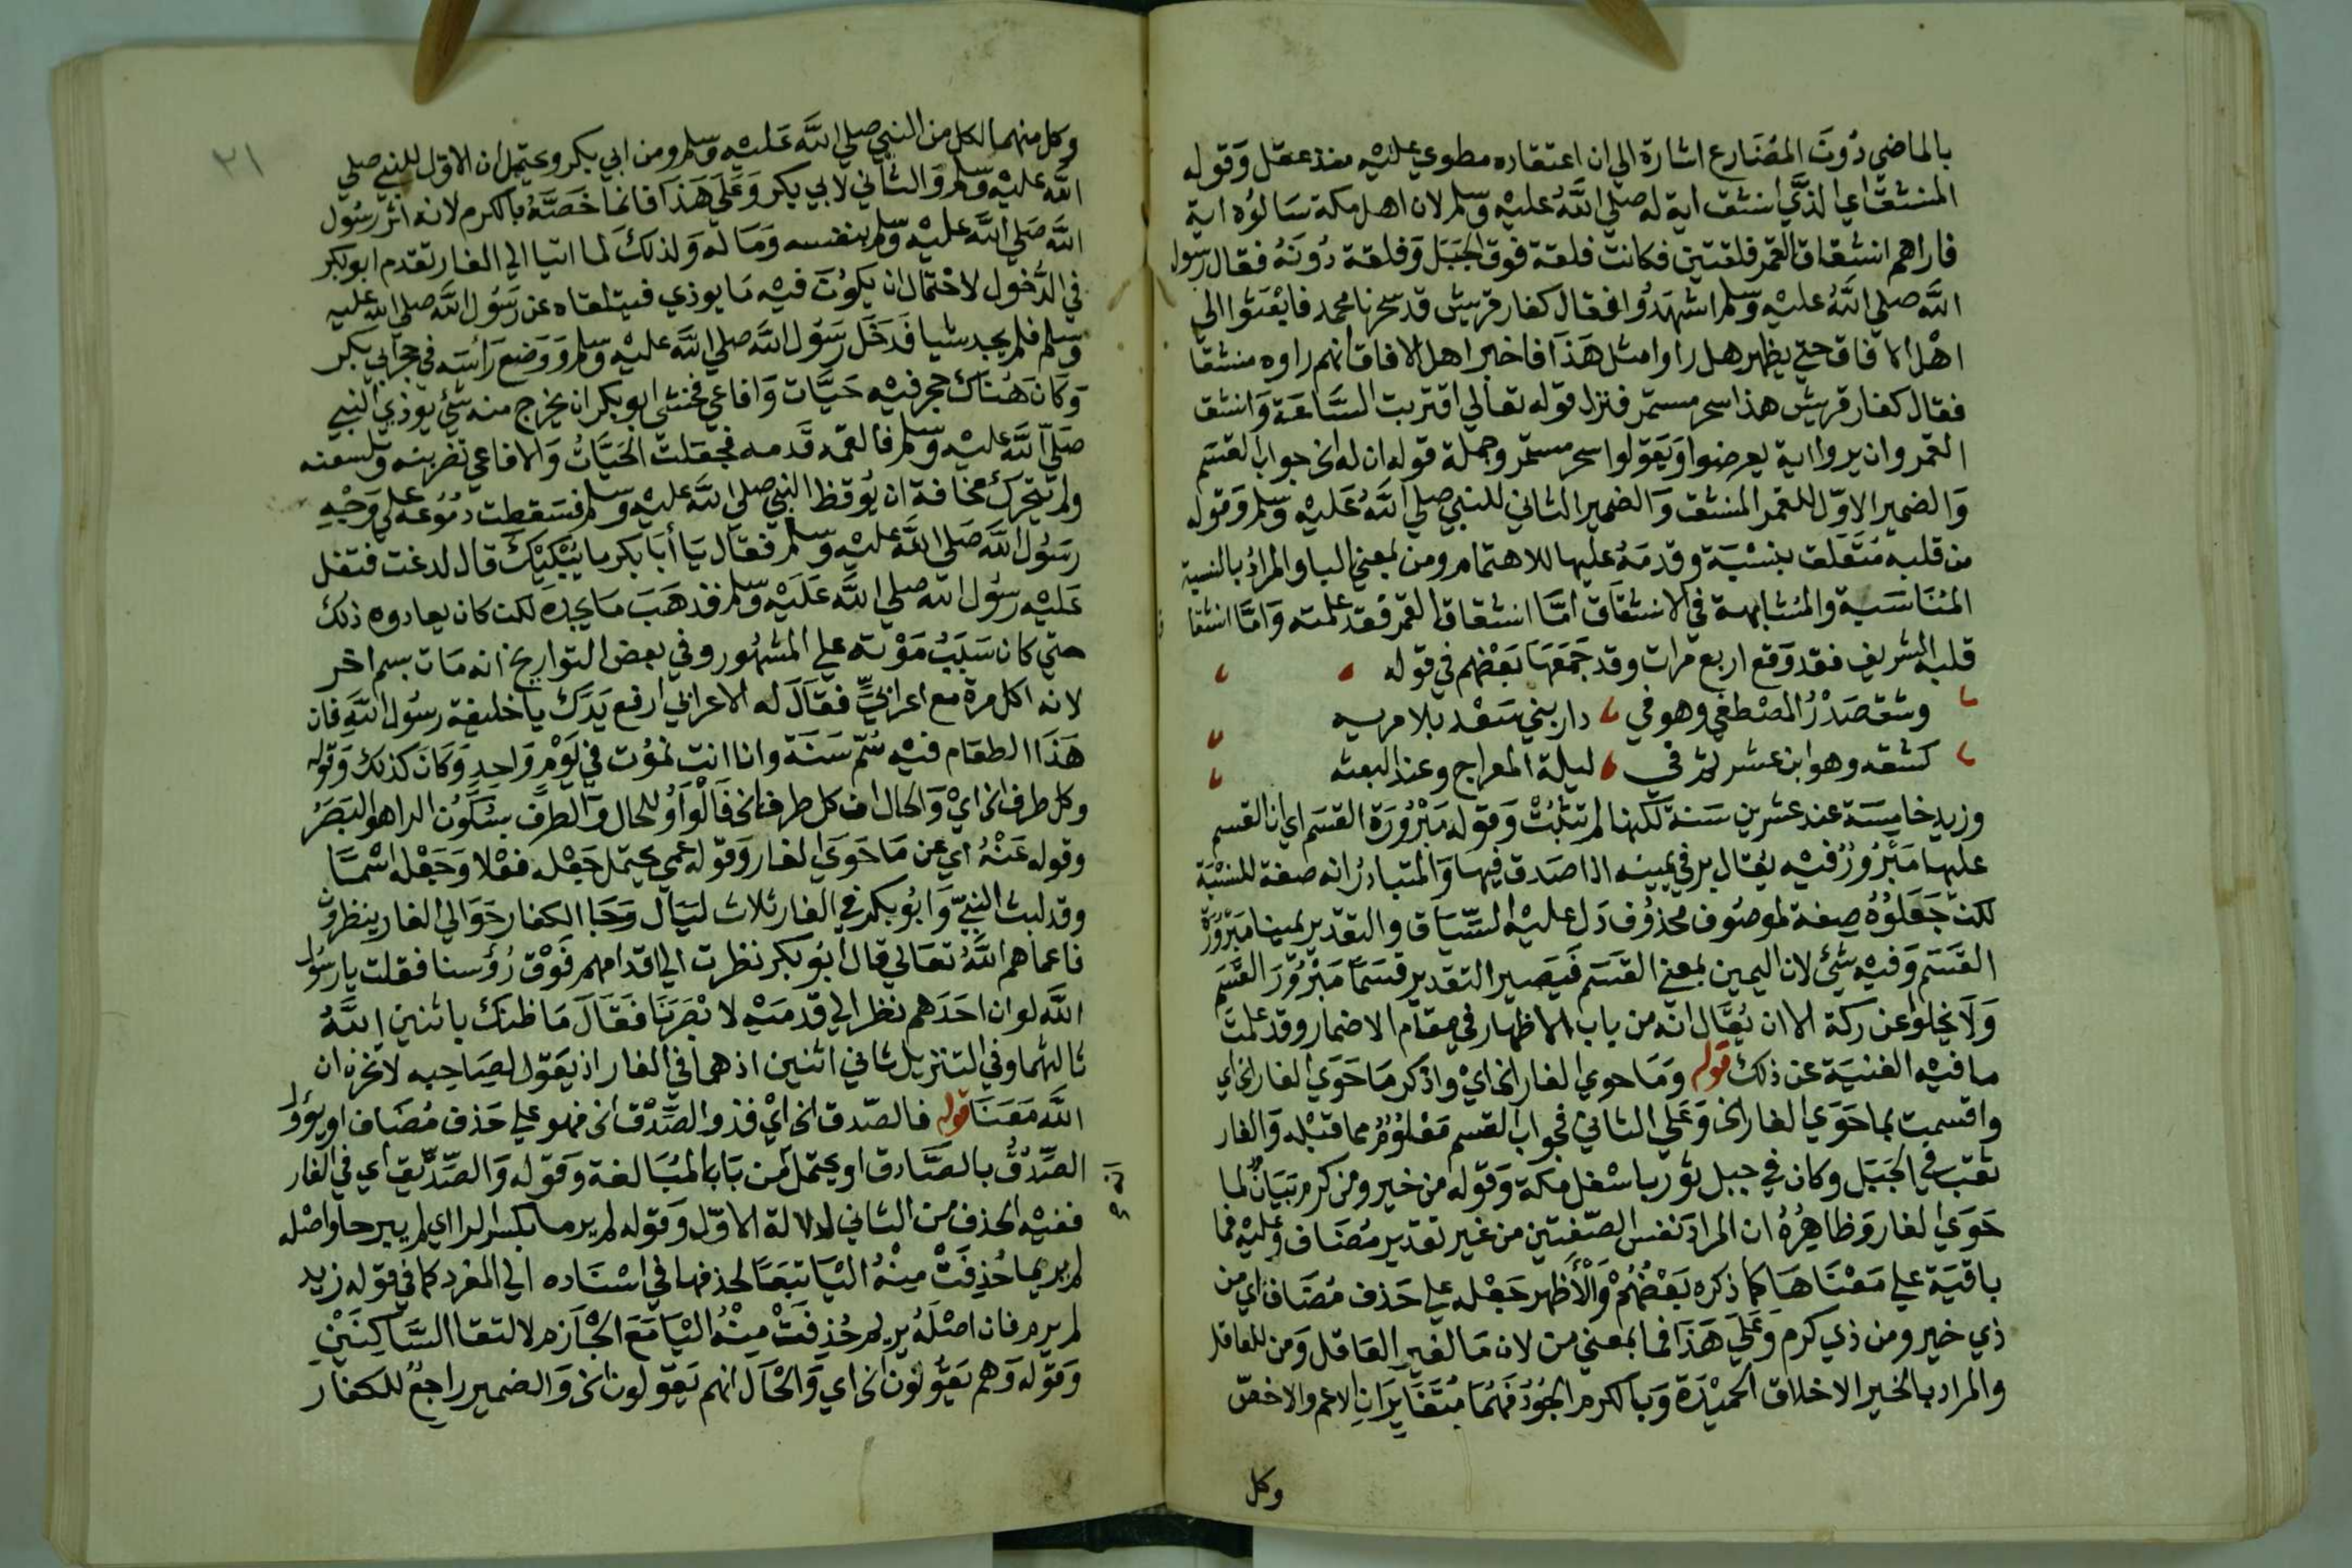 بالماضي دون المضارع اشارة الي ان اعتقاده مطوي عليه منذ عقل وقوله
المنشق اي الذي انشق اية له صلي الله عليه وسلم لان اهل مكة سالوه اية
فاراهم انشقاق القمر فلقتين فكانت فلقة فوق الجبل وفلقة دونه فقال رسول
الله صلي الله عليه وسلم اشهدوا فقال كفار قريش قد سحرنا محمد فابعثوا الي
اهل الافاق حتي يظهر هل راوا مثل هذا فاخبر اهل الافاق انهم راوه منشقا
فقال كفار قريش هذا سحر مستمر فنزل قوله تعالي اقتربت الساعة وانشق
القمر وان يروا اية يعرضوا ويقولوا سحر مستمر وجملة قوله ان له الخ جواب القسم
والضمير الاول للقمر المنشق والضمير الثاني للنبي صلي الله عليه وسلم وقوله
من قلبه متعلق بنسبة وقدمه عليها للاهتمام ومن بمعني البا والمراد بالنسبة
المناسبة والمشابهة في الانشقاق اما انشقاق القمر فقد علمته واما انشقا
قلبه الشريف فقد وقع اربع مرات وقد جمعها بعضهم في قوله
وشق صدر المصطفي وهو في دار بني سعد بلا مريه
كشقه وهو ابن عشر ثم في ليلة المعراج وعند البعثه
وزيد خامسة عند عشرين سنة لكنها لم تثبت وقوله مبرورة القسم اي ان القسم
عليها مبرور فيه يقال بر في يمينه اذا صدق فيها والمتبادر انه صفة للنسبة
لكن جعلوه صفة لموصوف محذوف دل عليه السياق والتقدير يمينا مبرورة
القسم وفيه شئ لان اليمين بمعني القسم فيصير التقدير قسما مبرور القسم
ولا يخلوا عن ركة الا ان يقال انه من باب الاظهار في مقام الاضمار وقد علمت
ما فيه الغنية عن ذلك قوله وما حوي الغار الخ اي واذكر ما حوي الغار الخ اي
واقسمت بما حوي الغار الخ وعلي الثاني فجواب القسم معلوم مما قبله والغار
نقب في الجبل وكان في جبل ثور باسفل مكة وقوله من خير ومن كرم تبيان لما
حوي الغار وظاهره ان المراد نفس الصفتين من غير تقدير مضاف وعليه فما
باقية علي معناها كما ذكره بعضهم والاظهر جعله علي حذف مضاف اي من
ذي خير ومن ذي كرم وعلي هذا فما بمعني من لان ما لغير العاقل ومن للعاقل
والمراد بالخير الاخلاق الحميدة وبالكرم الجود فهما متغايران الاعم والاخص
وكل
٣١
وكل منهما لكل من النبي صلي الله عليه وسلم ومن ابي بكر ويحتمل ان الاول للنبي صلي
الله عليه وسلم والثاني لابي بكر وعلي هذا فانما خصه بالكرم لانه اثر رسول
الله صلي الله عليه وسلم بنفسه وماله ولذلك لما اتيا الي الغار تقدم ابو بكر
في الدخول لاحتمال ان يكون فيه ما يوذي فيتلقاه عن رسول الله صلي الله عليه
وسلم فلم يجد شيا فدخل رسول الله صلي الله عليه وسلم ووضع راسه في حجر ابي بكر
وكان هناك جحر فيه حيات وافاعي فخشي ابو بكر ان يخرج منه شئ يوذي النبي
صلي الله عليه وسلم فالقمه قدمه فجعلت الحيات والافاعي تضربنه وتلسعنه
ولم يتحرك مخافة ان يوقظ النبي صلي الله عليه وسلم فسقطت دموعه علي وجه
رسول الله صلي الله عليه وسلم فقال يا ابا بكر ما يبكيك قال لدغت فتفل
عليه رسول الله صلي الله عليه وسلم فذهب ما يجده لكن كان يعاوده ذلك
حتي كان سبب موته علي المشهور وفي بعض التواريخ انه مات بسم اخر
لانه اكل مرة مع اعرابي فقال له الاعرابي ارفع يدك يا خليفة رسول الله فان
هذا الطعام فيه سم سنة وانا انت نموت في يوم واحد وكان كذلك وقوله
وكل طرف الخ اي والحال ان كل طرف الخ فالواو للحال والطرف بسكون الرا هو البصر
وقوله عنه اي عن ما حوي الغار وقوله عمي يحتمل جعله فعلا وجعله اسما
وقد لبث النبي وابو بكر في الغار ثلاث ليال وجا الكفار حوالي الغار ينظرون
فاعماهم الله تعالي قال ابو بكر نظرت الي اقدامهم فوق رؤسنا فقلت يا رسول
الله لو ان احدهم نظر الي قدميه لابصرنا فقال ما ظنك باثنين الله
ثالثهما وفي التنزيل ثاني اثنين اذ هما في الغار اذ يقول لصاحبه لا تحزن ان
الله معنا قوله فالصدق الخ اي فذو الصدق الخ فهو علي حذف مضاف او يؤول
الصدق بالصادق او يحتمل من باب المبالغة وقوله والصديق اي في الغار
ففيه الحذف من الثاني لدلالة الاول وقوله لم يرما بكسر الرا اي لم يبرحا واصله
لم يريما حذفت منه اليا تبعا لحذفها في اسناده الي المفرد كما في قوله زيد
لم يرم فان اصله يريم حذفت منه اليا مع الجازم لالتقا الساكنين
وقوله وهم يقولون الخ اي والحال انهم يقولون الخ والضمير راجع للكفار